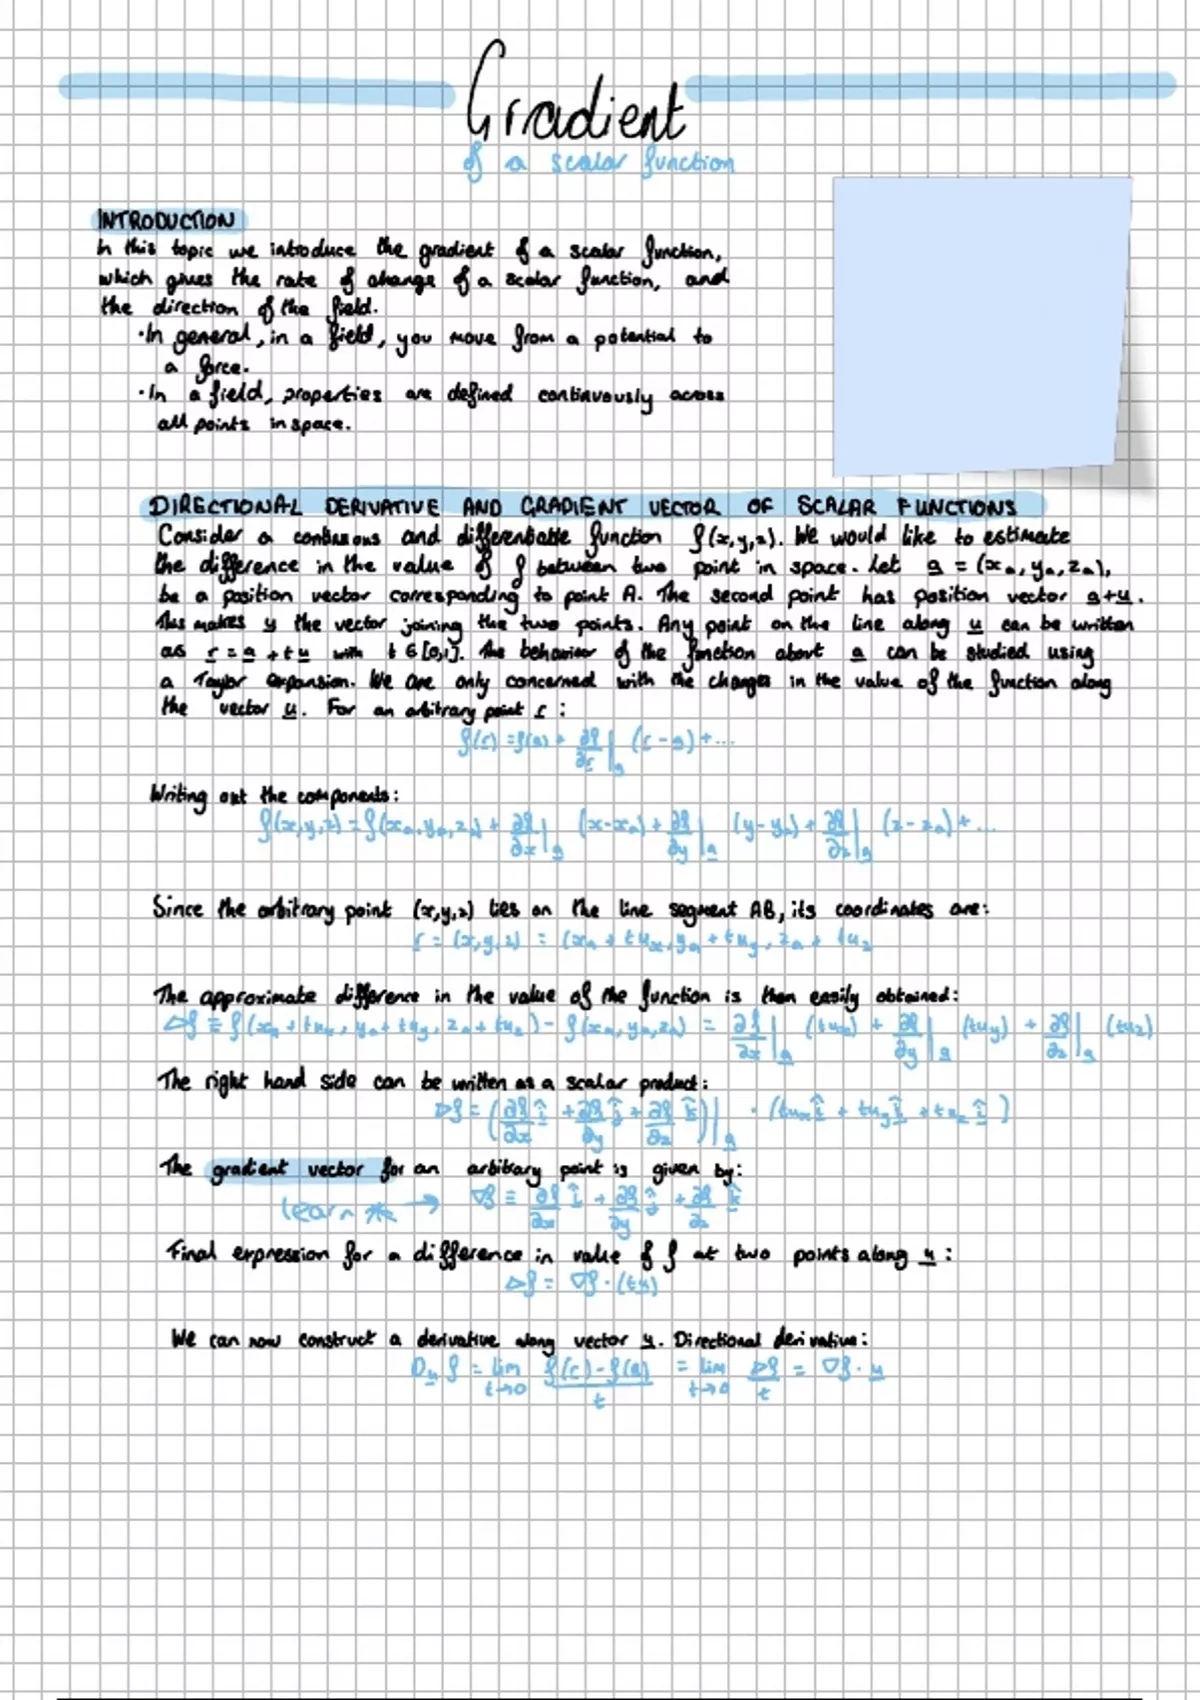 Gradient
of a scalar function
INTRODUCTION
In this topic we introduce the gradient of a scalar function,
which gives the rate of change of a scalar function, and
the direction of the field.
·In general, in a field, you move from a potential to
a force.
·In a field, properties are defined continuously across
all points in space.
DIRECTIONAL DERIVATIVE AND GRADIENT VECTOR OF SCALAR FUNCTIONS
Consider a continuous and differentiable function f(x,y,z). We would like to estimate
the difference in the value of f between two point in space. Let a = (xₐ, yₐ, zₐ),
be a position vector corresponding to point A. The second point has position vector a+u.
This makes u the vector joining the two points. Any point on the line along u can be written
as r = a + tu with t ∈ [0,1]. The behaviour of the function about a can be studied using
a Taylor expansion. We are only concerned with the changes in the value of the function along
the vector u. For an arbitrary point r :
f(r) = f(a) + ∂f/∂r|a (r - a) + ...
Writing out the components:
f(x,y,z) = f(xₐ,yₐ,zₐ) + ∂f/∂x|a (x-xₐ) + ∂f/∂y|a (y-yₐ) + ∂f/∂z|a (z-zₐ) + ...
Since the arbitrary point (x,y,z) lies on the line segment AB, its coordinates are:
r = (x,y,z) = (xₐ + tuₓ, yₐ + tu_y, zₐ + tu_z
The approximate difference in the value of the function is then easily obtained:
Δf ≡ f(xₐ + tuₓ, yₐ + tu_y, zₐ + tu_z) - f(xₐ, yₐ, zₐ) = ∂f/∂x|a (tuₓ) + ∂f/∂y|a (tu_y) + ∂f/∂z|a (tu_z)
The right hand side can be written as a scalar product:
Δf = (∂f/∂x î + ∂f/∂y ĵ + ∂f/∂z k̂)|a · (tuₓ î + tu_y î + tu_z î)
The gradient vector for an arbitrary point is given by:
learn * → ∇f ≡ ∂f/∂x î + ∂f/∂y ĵ + ∂f/∂z k̂
Final expression for a difference in value of f at two points along u :
Δf = ∇f · (tu)
We can now construct a derivative along vector u. Directional derivative:
D_u f = lim t→0 f(r) - f(a)/t = lim t→0 Δf/t = ∇f · u